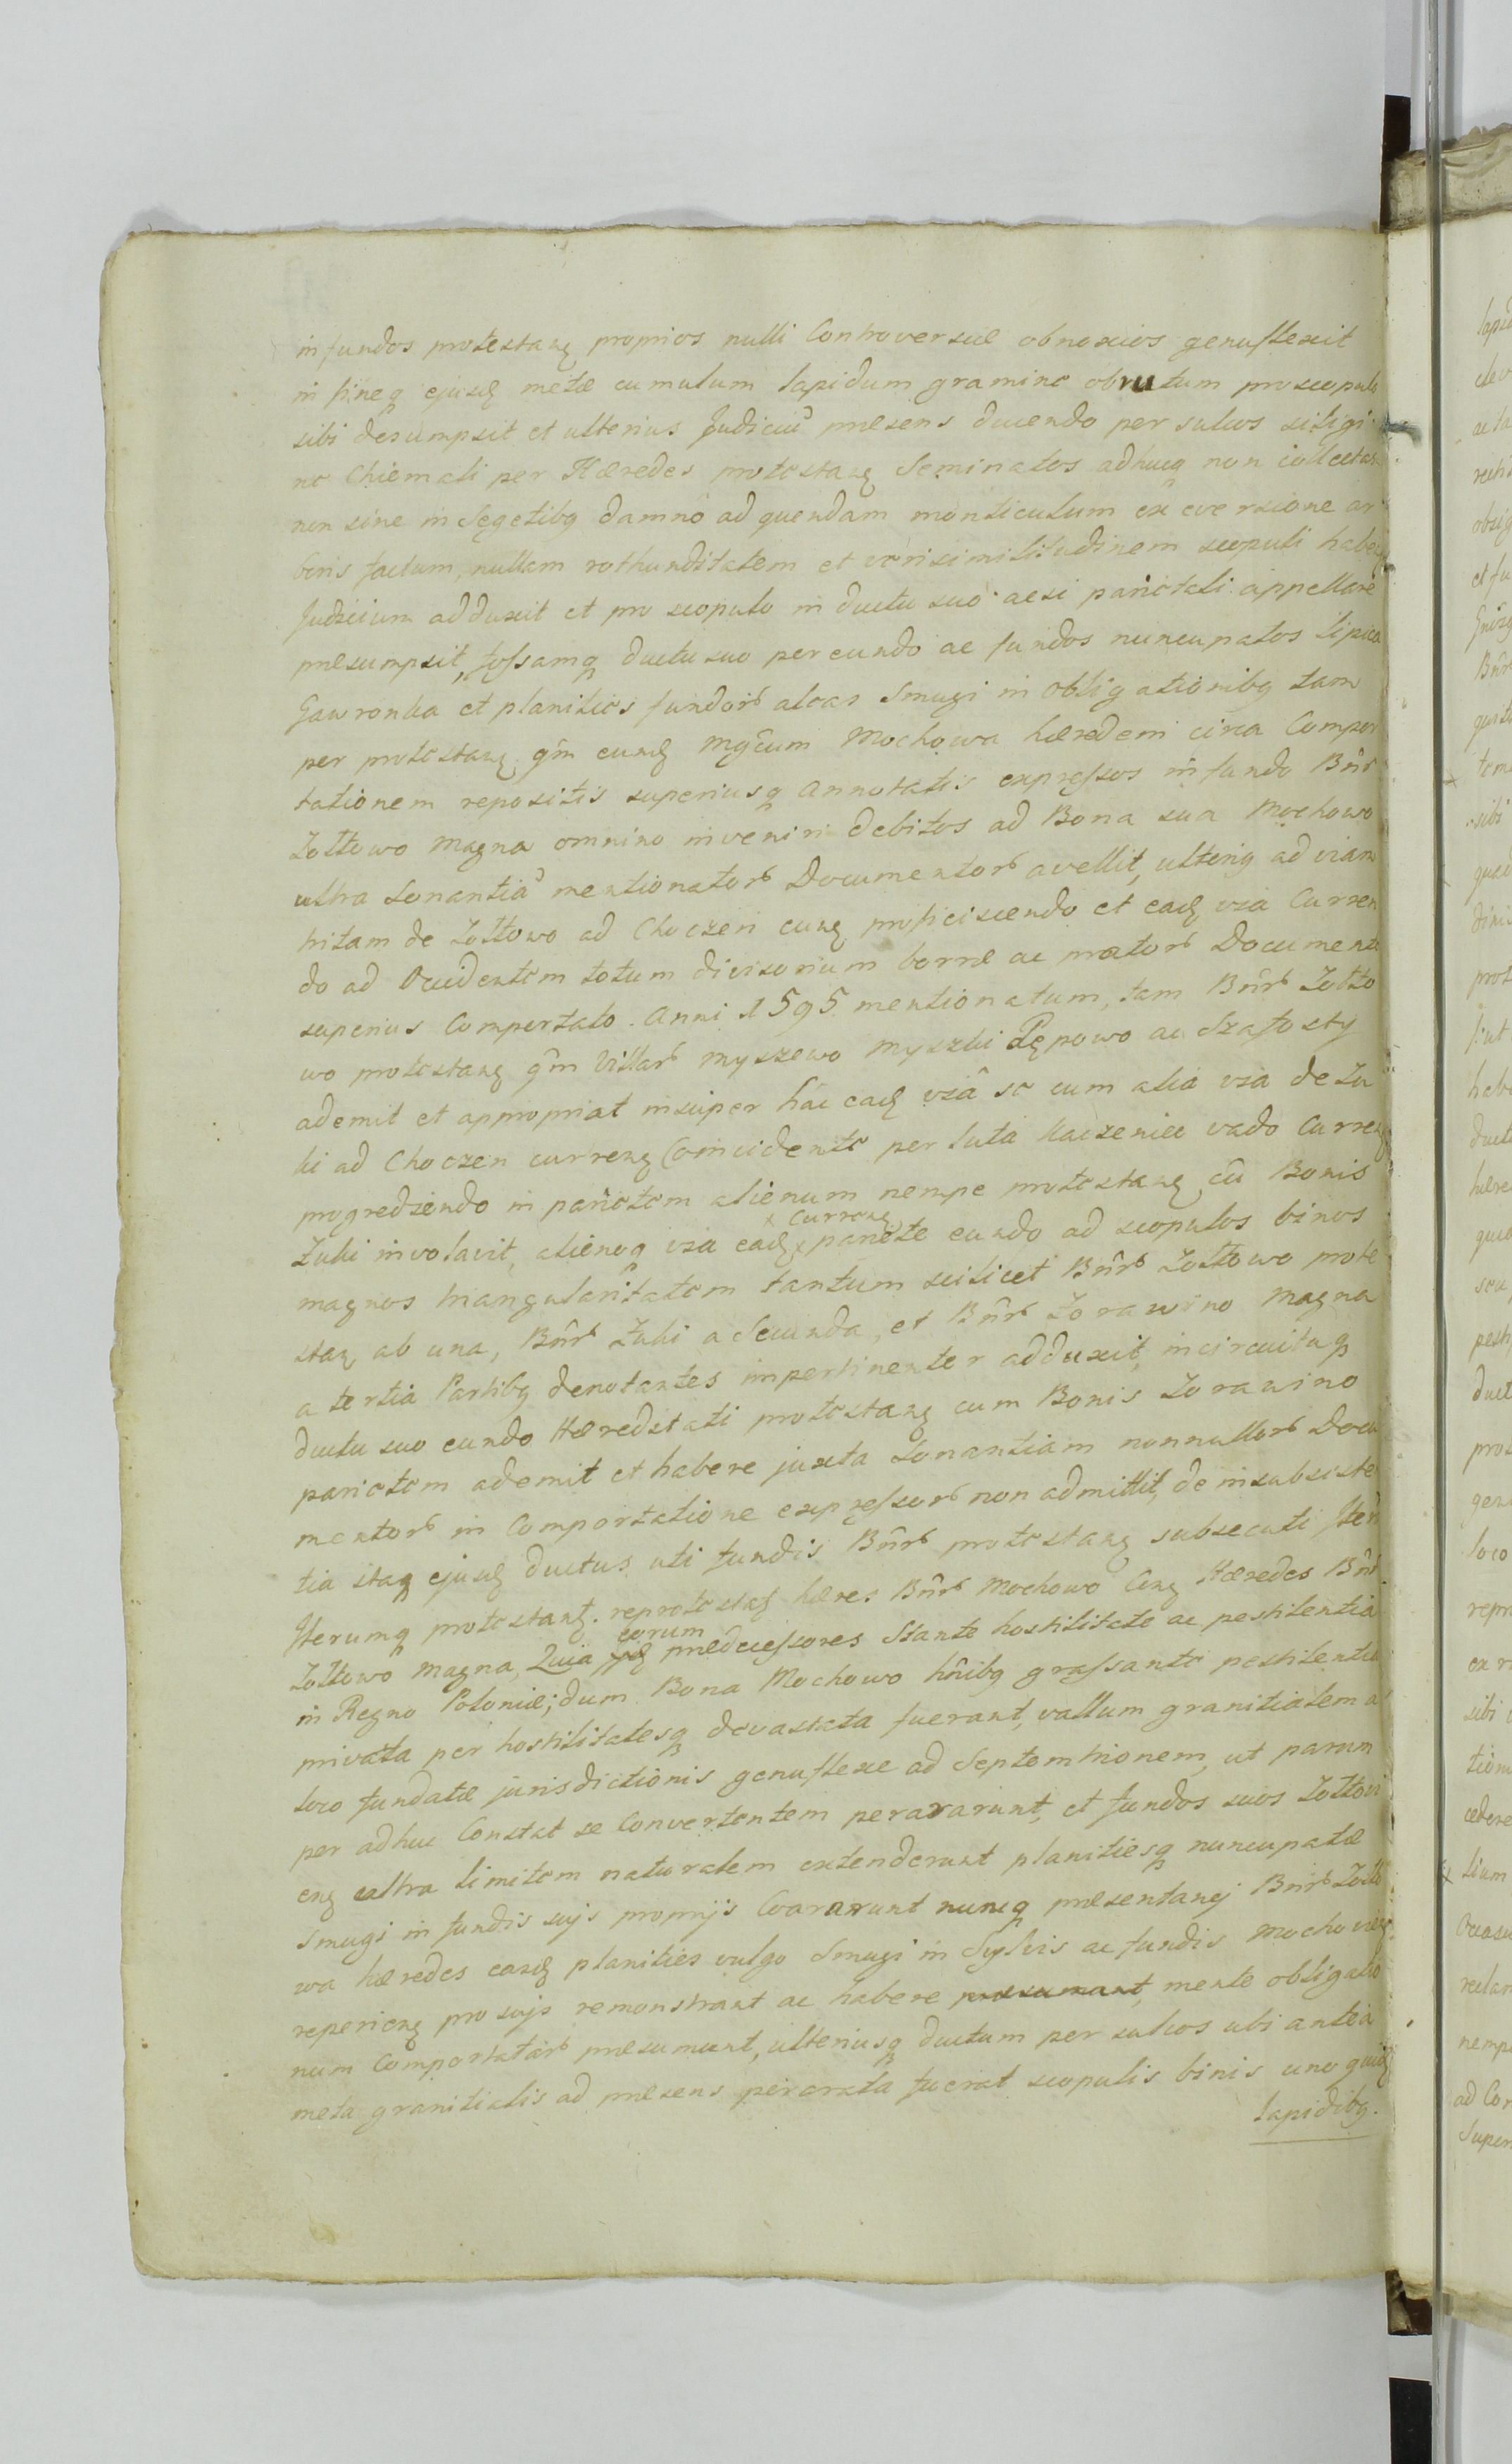 in fundos protestanꝫ proprios nulli Controversiæ obnoxios genuflexit
in fineq ejusdꝫ metæ cumulum lapidum gramine obrutum pro scopulo
sibi desumpsit et ulterius Judiciũ præsens ducendo per sulcos siligi
ne Chiemali per Hæredes protestanꝫ Seminatos adhucq non collectas
non sine in Segetibꝫ damno ad quendam monticulum ex eversione ar
boris factum, nullam rothunditatem et verisimilitudinem scopuli haben
Judicium adduxit et pro scopulo in ductu suo acsi parietali appellare
præsumpsit, fossamq ductu suo pereundo ac fundos nuncupatos Lipica
Gawronka et planities fundorꝫ alcas Smugi in obligationibꝫ tam
per protestanꝫ qm̃ eundꝫ Mg̃cum Mochowa hæredem circa Compor
tationem repositis superiusq annotatis expressos in fundo Bnr̃
Zołtowo Magna omnino inveniri debitos ad Bona sua Mochowo
ultra Sonantiã mentionatorꝫ Documentorꝫ avellit, ulterig ad viam
tritam de Zołtowo ad Choczen eunꝫ proficiscendo et eadꝫ via Curren
do ad Occidentem totum divisorium bornæ ac pratorꝫ Documento
superius Comportato Anni 1595 mentionatum, tam Bnr̃ Zołto
wo protestanꝫ qm̃ Villarꝫ Myszewo Myszki Pępowo ac Szafosty
ademit et appropriat insuper hac eadꝫ viâ se cum alia via de Zu
ki ad Choczen currenꝫ Coincidente per luta Kaczeniec vado Curren
progrediendo in parietem alienum nempe protestanꝫ cũ Bonis
Zuki involavit, alienoq via eadꝫ x Currenꝫ pariete eundo ad scopulos binos
magnos triangularitatem tantum scilicet Bnr̃ Zołtowo prote
stanꝫ ab una, Bnr̃ Zuki a Secunda, et Bnr̃ Zorawino Magna
a tertia Partibꝫ denotantes impertinenter adduxit, incircuituq
ductu suo eundo Hæreditati protestanꝫ cum Bonis Zorawino
parietem ademit et habere juxta Sonantiam nonnullorꝫ Docu
mentorꝫ in Comportatione expressorꝫ non admittit, de insubsisten
tia itaq ejusdꝫ ductus uti fundis Bnr̃ protestanꝫ subsecuti Iteru
Iterumq protestant. reprotestatꝫ hæres Bnr̃ Mochowo Conꝫ Hæredes Bnr̃
Zołtowo Magna, Quia eorum prædecessores Stante hostilitate ac pestilentia
in Regno Poloniæ; dum Bona Mochowo hñibꝫ grassante pestilentia
privata per hostilitatesq devastata fuerant, vallum granitialem a
loco fundatæ jurisdictionis genuflexe ad Septemtrionem, ut parum
per adhuc Constat se Convertentem perararunt, et fundos suos Zołtovi
enꝫ extra limitem naturalem extenderunt planitiesq nuncupatæ
Smugi in fundis sujs proprijs Coararunt nuncq præsentanej Bnr̃ Zołto
wa hæredes easdꝫ planities vulgo Smugi in Sylvis ac fundis Mochovienꝫ
reperienꝫ pro sujs remonstrant ac habere præsumant, mente obligatio
num Comportatarꝫ præsumunt, ulteriusq ductum per sulcos ubi antea
meta granitialis ad præsens perarata fuerat scopulis binis uno quidꝫ
lapidibꝫ.